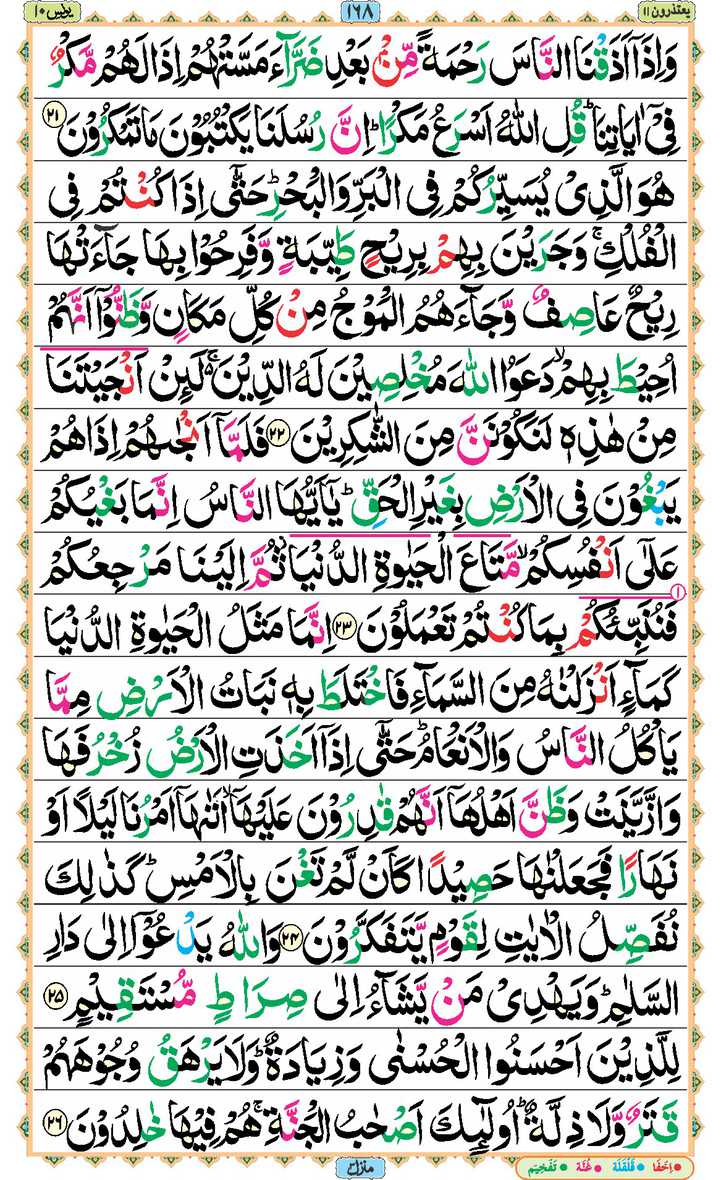 يعتذرون ١١ ١٦٨ يونس ١٠
وَاِذَاۤ اَذَقْنَا النَّاسَ رَحْمَةً مِّنْۢ بَعْدِ ضَرَّآءَ مَسَّتْهُمْ اِذَا لَهُمْ مَّكْرٌ
فِیْۤ اٰیَاتِنَاؕ قُلِ اللّٰهُ اَسْرَعُ مَكْرًاؕ اِنَّ رُسُلَنَا یَكْتُبُوْنَ مَا تَمْكُرُوْنَ ﴿۲۱﴾
هُوَ الَّذِیْ یُسَیِّرُكُمْ فِی الْبَرِّ وَالْبَحْرِؕ حَتّٰۤی اِذَا كُنْتُمْ فِی
الْفُلْكِۚ وَجَرَیْنَ بِهِمْ بِرِیْحٍ طَیِّبَةٍ وَّفَرِحُوْا بِهَا جَآءَتْهَا
رِیْحٌ عَاصِفٌ وَّجَآءَهُمُ الْمَوْجُ مِنْ كُلِّ مَكَانٍ وَّظَنُّوْۤا اَنَّهُمْ
اُحِیْطَ بِهِمْۙ دَعَوُا اللّٰهَ مُخْلِصِیْنَ لَهُ الدِّیْنَ۬ۚ لَئِنْ اَنْجَیْتَنَا
مِنْ هٰذِهٖ لَنَكُوْنَنَّ مِنَ الشّٰكِرِیْنَ ﴿۲۲﴾ فَلَمَّاۤ اَنْجٰىهُمْ اِذَا هُمْ
یَبْغُوْنَ فِی الْاَرْضِ بِغَیْرِ الْحَقِّؕ یٰۤاَیُّهَا النَّاسُ اِنَّمَا بَغْیُكُمْ
عَلٰۤی اَنْفُسِكُمْۙ مَّتَاعَ الْحَیٰوةِ الدُّنْیَاؗ ثُمَّ اِلَیْنَا مَرْجِعُكُمْ
فَنُنَبِّئُكُمْ بِمَا كُنْتُمْ تَعْمَلُوْنَ ﴿۲۳﴾ اِنَّمَا مَثَلُ الْحَیٰوةِ الدُّنْیَا
كَمَآءٍ اَنْزَلْنٰهُ مِنَ السَّمَآءِ فَاخْتَلَطَ بِهٖ نَبَاتُ الْاَرْضِ مِمَّا
یَاْكُلُ النَّاسُ وَالْاَنْعَامُؕ حَتّٰۤی اِذَاۤ اَخَذَتِ الْاَرْضُ زُخْرُفَهَا
وَازَّیَّنَتْ وَظَنَّ اَهْلُهَاۤ اَنَّهُمْ قٰدِرُوْنَ عَلَیْهَاۤۙ اَتٰىهَاۤ اَمْرُنَا لَیْلًا اَوْ
نَهَارًا فَجَعَلْنٰهَا حَصِیْدًا كَاَنْ لَّمْ تَغْنَ بِالْاَمْسِؕ كَذٰلِكَ
نُفَصِّلُ الْاٰیٰتِ لِقَوْمٍ یَّتَفَكَّرُوْنَ ﴿۲۴﴾ وَاللّٰهُ یَدْعُوْۤا اِلٰی دَارِ
السَّلٰمِؕ وَیَهْدِیْ مَنْ یَّشَآءُ اِلٰی صِرَاطٍ مُّسْتَقِیْمٍ ﴿۲۵﴾
لِلَّذِیْنَ اَحْسَنُوا الْحُسْنٰی وَزِیَادَةٌؕ وَلَا یَرْهَقُ وُجُوْهَهُمْ
قَتَرٌ وَّلَا ذِلَّةٌؕ اُولٰٓئِكَ اَصْحٰبُ الْجَنَّةِۚ هُمْ فِیْهَا خٰلِدُوْنَ ﴿۲۶﴾
منزل ٣ • اِخفَا • قَلقَلَه • غُنَّه • تَفخِیم